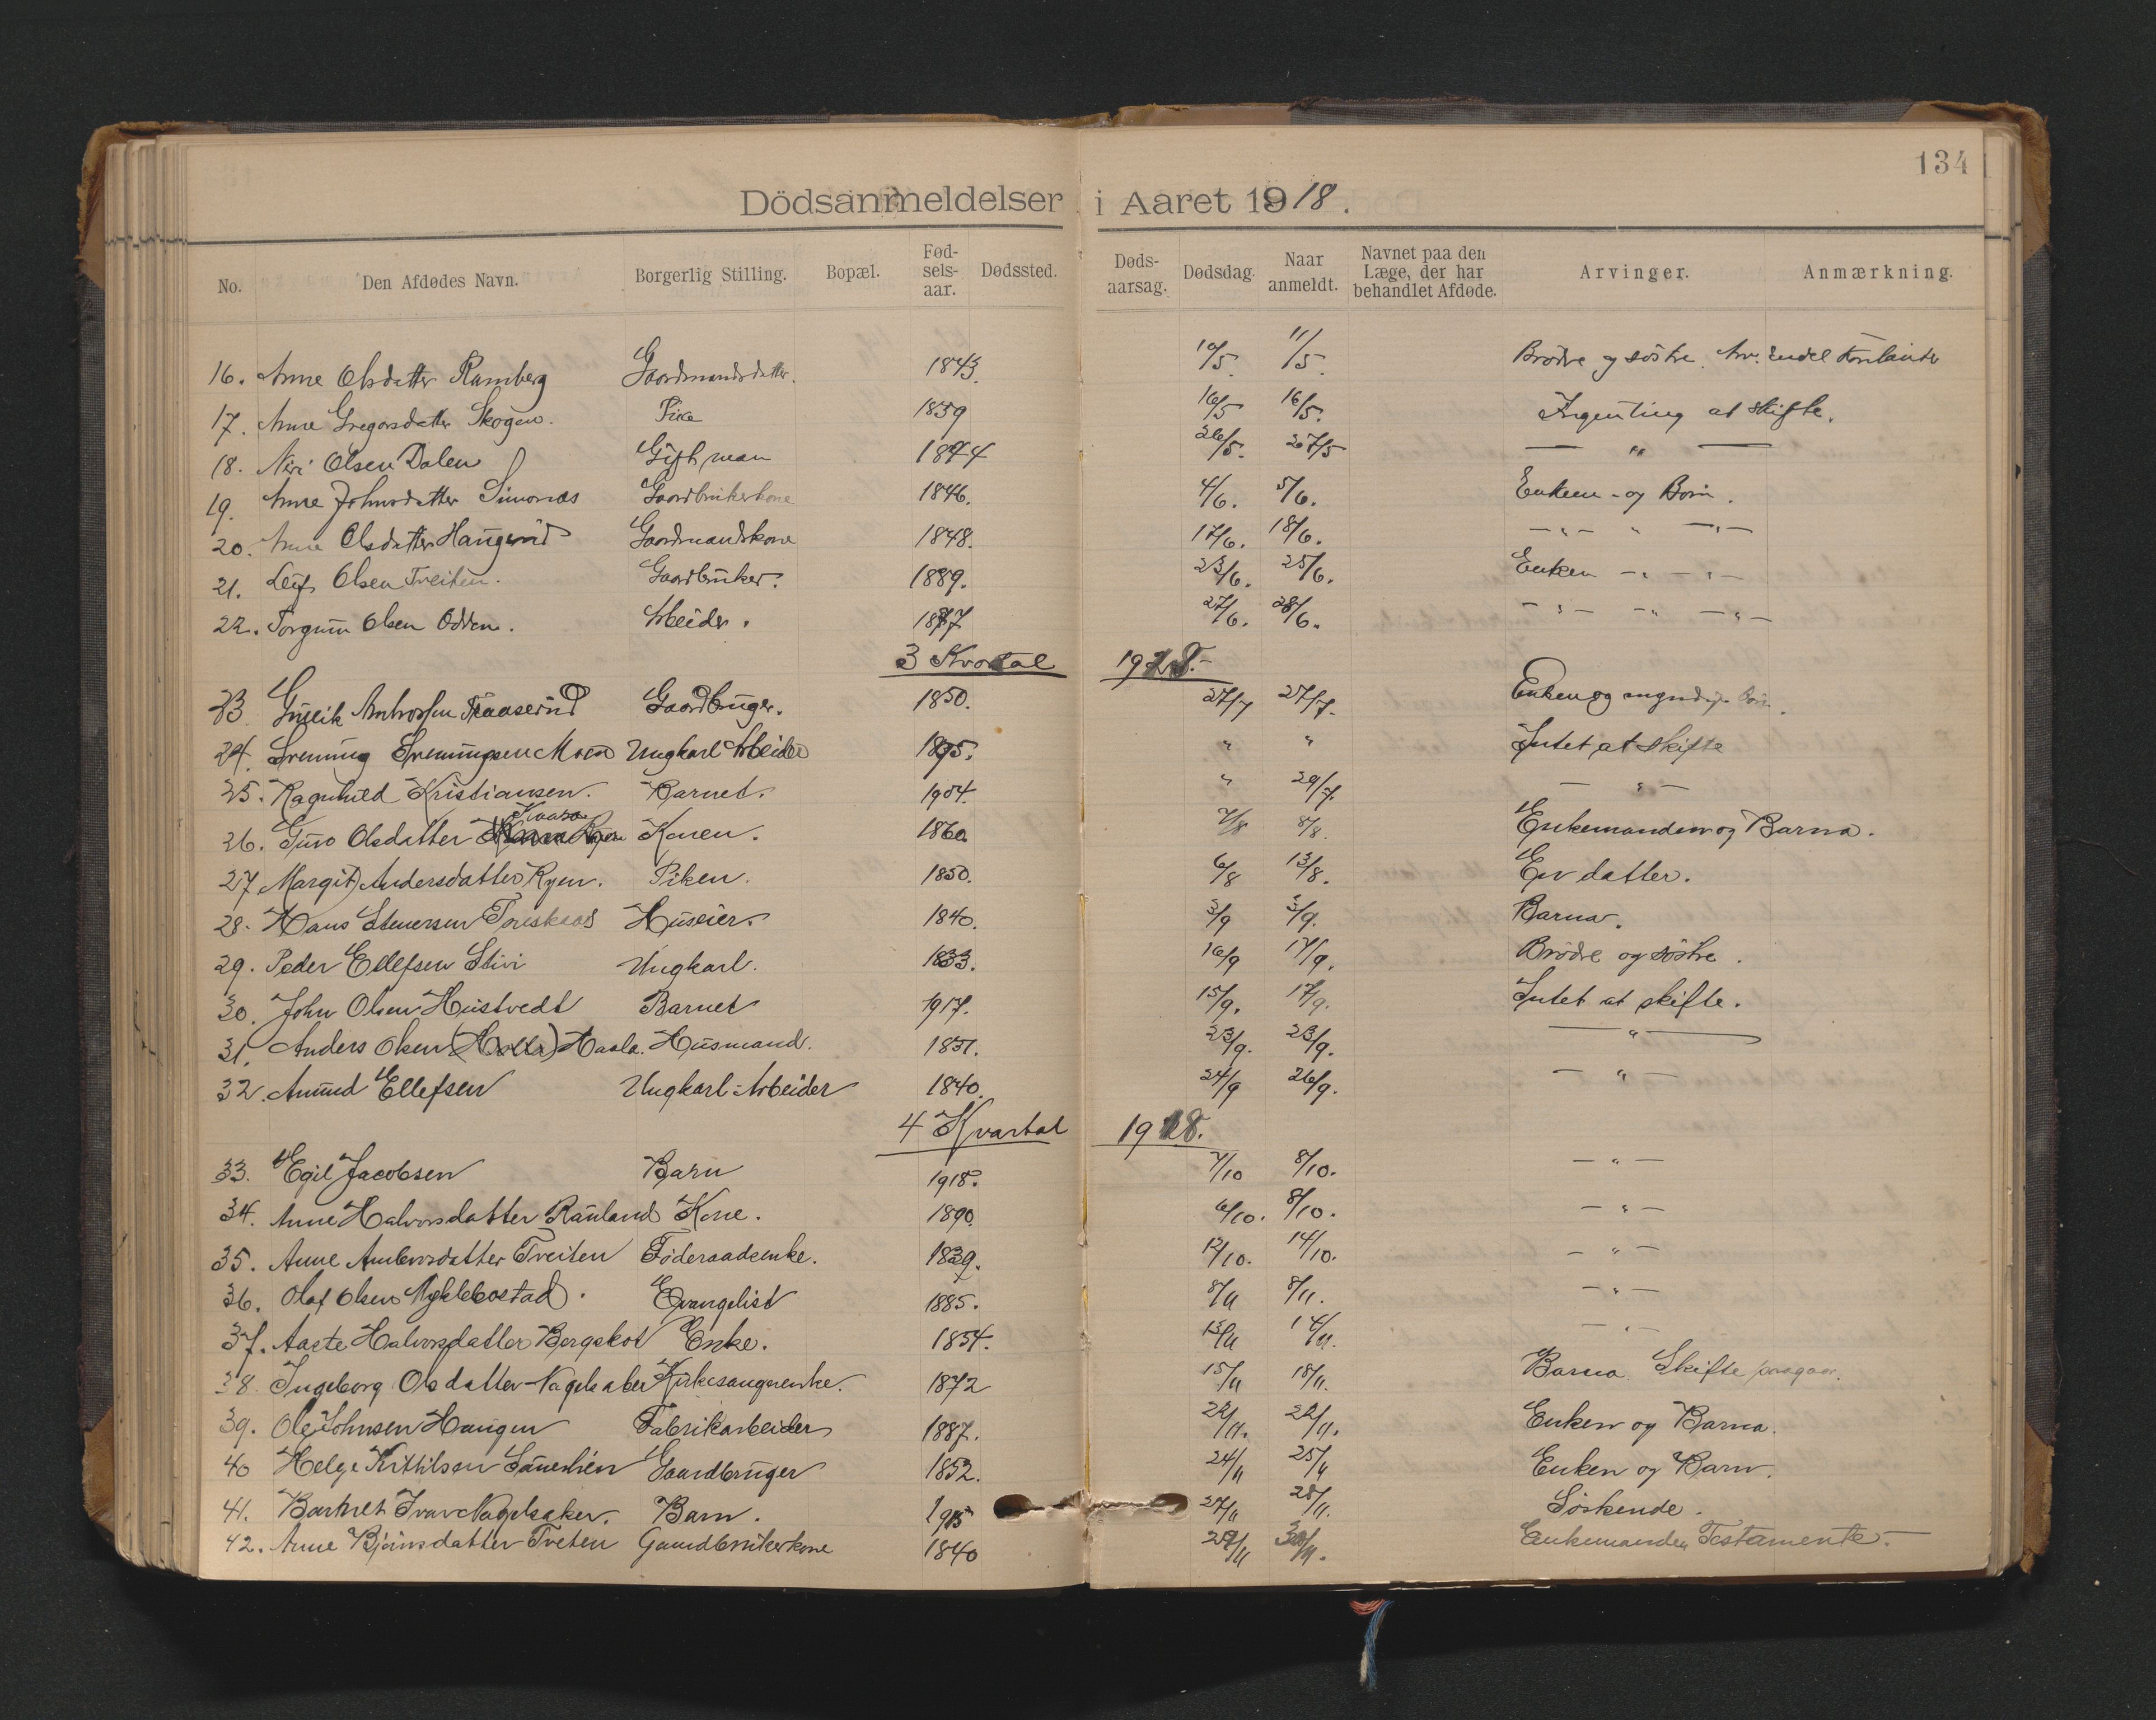 134
Dödsanmeldelser i Aaret 1918.
No. Den Afdødes Navn. Borgerlig Stilling. Bopæl. Fødselsaar. Dødssted. Dødsaarsag. Dødsdag. Naar anmeldt. Navnet paa den Læge, der har behandlet Afdøde. Arvinger. Anmærkning.
16. Anne Olsdatter Ramberg Gaardmandsdatter. 1843. 10/5. 11/5. Brödre og söstre.
17. Anne Gregarsdatter Skogen. Pike 1839 16/5 16/5. Ingenting at skifte.
18. Olsen Dalen Gift man 1844 26/5. 27/5 — " —
19. Anne Johnsdatter Simonæs Gaardbrukerkone 1846. 4/6. 5/6. Enken - og Born.
20. Anne Olsdatter Haugerud Gaardmandskone 1848. 17/6. 18/6. —"— " —"—
21. Leif Olsen Treiten. Gaardbruker. 1889. 23/6. 25/6. Enken —"—"—
22. Torgrim Olsen Odden. Arbeider. 1887 27/6. 28/6. —"— —"— —"—
3 Kvartal 1918.-
23. Gulleik Ambrosen Traaserud Gaardbruger. 1850. 27/7 27/7. Enken og myndige Börn.
24. Svenning Svenningsen Moen Ungkarl Arbeider 1895. " " Intet at skifte
25. Ragnhild Kristiansen. Barnet. 1904. " 29/7. — " —
26. Guro Olsdatter Konen. 1860. 7/8 8/8. Enkemanden og Barna.
27 Margit Andersdatter Ryen. Piken. 1850. 6/8 13/8. En datter.
28. Hans Steversen Huseier. 1840. 3/9 3/9. Barna.
29. Peder Ellefsen Stivi Ungkarl. 1833. 16/9 17/9. Brödre og söstre.
30. John Olsen Hustvedt Barnet 1917. 15/9. 17/9. Intet at skifte.
31. Anders Olsen (Holla) Haala. Husmand. 1851. 23/9. 23/9. — " —
32. Amund Ellefsen Ungkarl-Arbeider 1840. 24/9 26/9. — " —
4 Kvartal 1918.
33. Egil Jacobsen Barn 1918. 7/10 8/10. — " —
34. Anne Halvorsdatter Rauland Kone. 1890. 6/10. 8/10. — " —
35. Anne Ambrosdatter Treiten Föderaadsenke. 1839. 12/10. 14/10. — " —
36. Olaf Olsen Myklebostad. Evangelist 1885. 8/11 8/11. — " —
37. Aaste Halvorsdatter Bergskot Enke. 1854. 13/11 14/11. — " —
38. Ingeborg Olsdatter Nagelsaker Kirkesangerenke. 1872 15/11 18/11. Barna. Skifte paagaar.
39. Ole Johnsen Haugen Fabrikarbeider 1887. 22/11. 22/11. Enken og Barna.
40 Helge Kittilsen Gaardbruger 1852. 24/11 25/11 Enken og Barn.
41. Ivar Nagelsaker. Barn. 1915 27/11 28/11. Söskende.
42. Anne Björnsdatter Treten Gaardbrukerkone 1840 29/11 30/11. Enkemanden Testamente.-